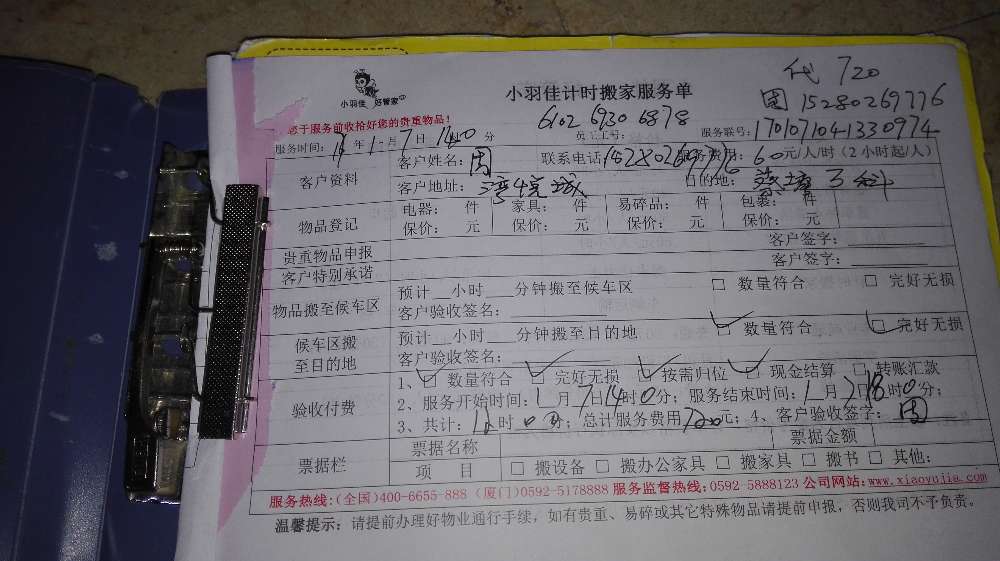 代 720
小羽佳 好管家
小羽佳计时搬家服务单
周 15280269776
您于服务前收拾好您的贵重物品!
6102 6930 6878
服务时间: 年 1 月 7 日 14 0 分 员工工号: 服务联号: 1701071041330974
客户资料 客户姓名: 周 联系电话: 15280269776 服务费用: 60 元/人/时(2小时起/人)
客户地址: 湾悦城 目的地:
物品登记 电器: 件 家具: 件 易碎品: 件 包裹: 件
保价: 元 保价: 元 保价: 元 保价: 元
贵重物品申报 客户签字:
客户特别承诺 客户签字:
物品搬至候车区 预计__小时___分钟搬至候车区 □ 数量符合 □ 完好无损
客户验收签名:
候车区搬至目的地 预计__小时___分钟搬至目的地 □ 数量符合 □ 完好无损
客户验收签名:
验收付费 1、□ 数量符合 □ 完好无损 □ 按需归位 □ 现金结算 □ 转账汇款
2、服务开始时间: 1 月 7 日 14 时 0 分; 服务结束时间: 1 月 7 日 18 时 0 分;
3、共计: 12 时 0 分; 总计服务费用 720 元; 4、客户验收签字: 周
票据栏 票据名称 票据金额
项 目 □ 搬设备 □ 搬办公家具 □ 搬家具 □ 搬书 □ 其他:
服务热线:(全国)400-6655-888 (厦门)0592-5178888 服务监督热线:0592-5888123 公司网站:www.xiaoyujia.com
温馨提示: 请提前办理好物业通行手续,如有贵重、易碎或其它特殊物品请提前申报,否则我司不予负责。